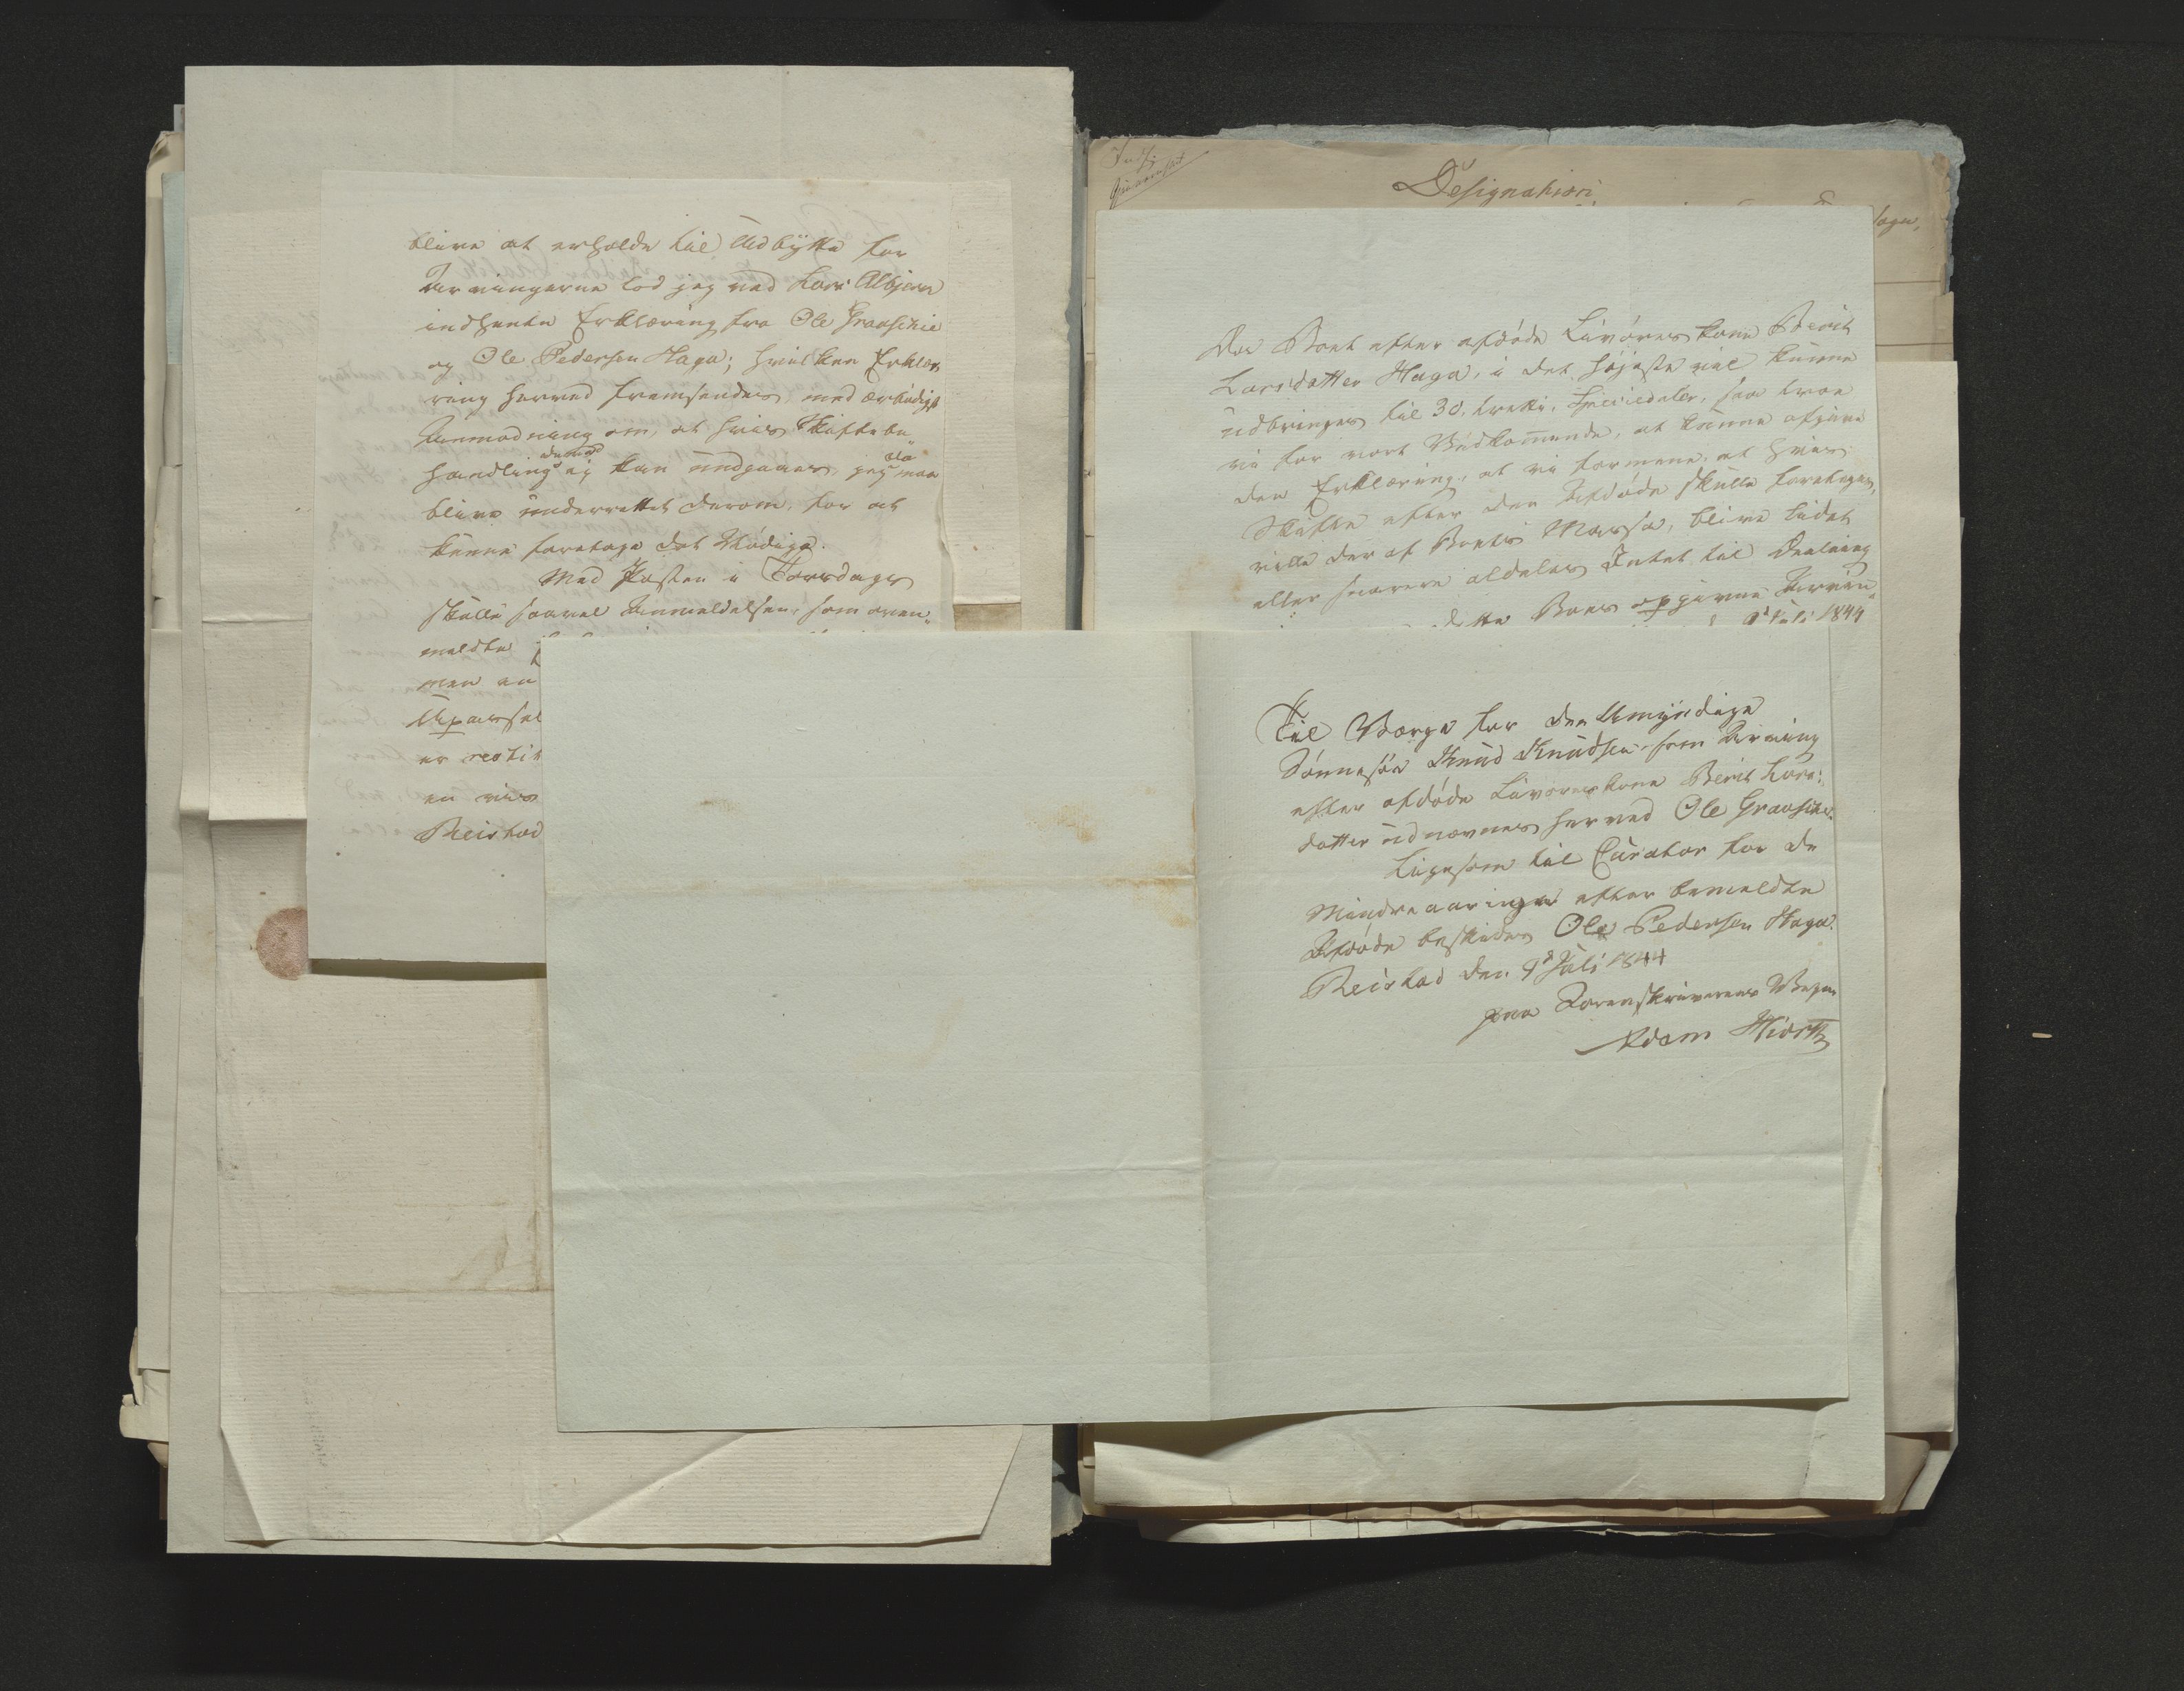 blive at erholde til Udbytte for
Arvingerne lod jeg ved Lars Albjerr
indhente Erklæring fra Ole Graaschie
og Ole Pedersen Haga; hvilken Erklæ-
ring herved fremsendes med ærbödigst
Anmodning om, at hvis Skiftebe„
handling derved ej kan undgaaes, jeg da maa
blive underrettet derom, for at
kunne foretage det Nödige.
Med Posten i Torsdags
skulle saavel Anmeldelsen, som oven„
meldte
men en
Uparsel
er
en vis
Reistad
Designation
Da Boet efter afdöde Livöreskone Berit
Larsdatter Haga, i det höjeste vil kunne
udbringes til 30, tretti, Speciedaler, saa troe
vi for vort Vedkommende, at kunne afgive
den Erklæring, at vi formene, at hvis
Skifte efter den Afdöde skulle foretages,
ville der af Boets Massa, blive lidet
eller snarere aldeles Intet til Deeling
dette Boes opgivne Arvin„
9d Juli 1844
Til Værge for den Umyndige
Sönnesön Knud Knudsen som Arving
efter afdöde Livöreskone Berit Lars:
datter udnævnes herved Ole Graaschie.
Ligesom til Curator for de
Mindreaaringe efter bemeldte
Afdöde beskikes Ole Pedersen Haga.
Reistad den 9d Juli 1844
paa Sorenskriverens Vegne
Adam Hiorth